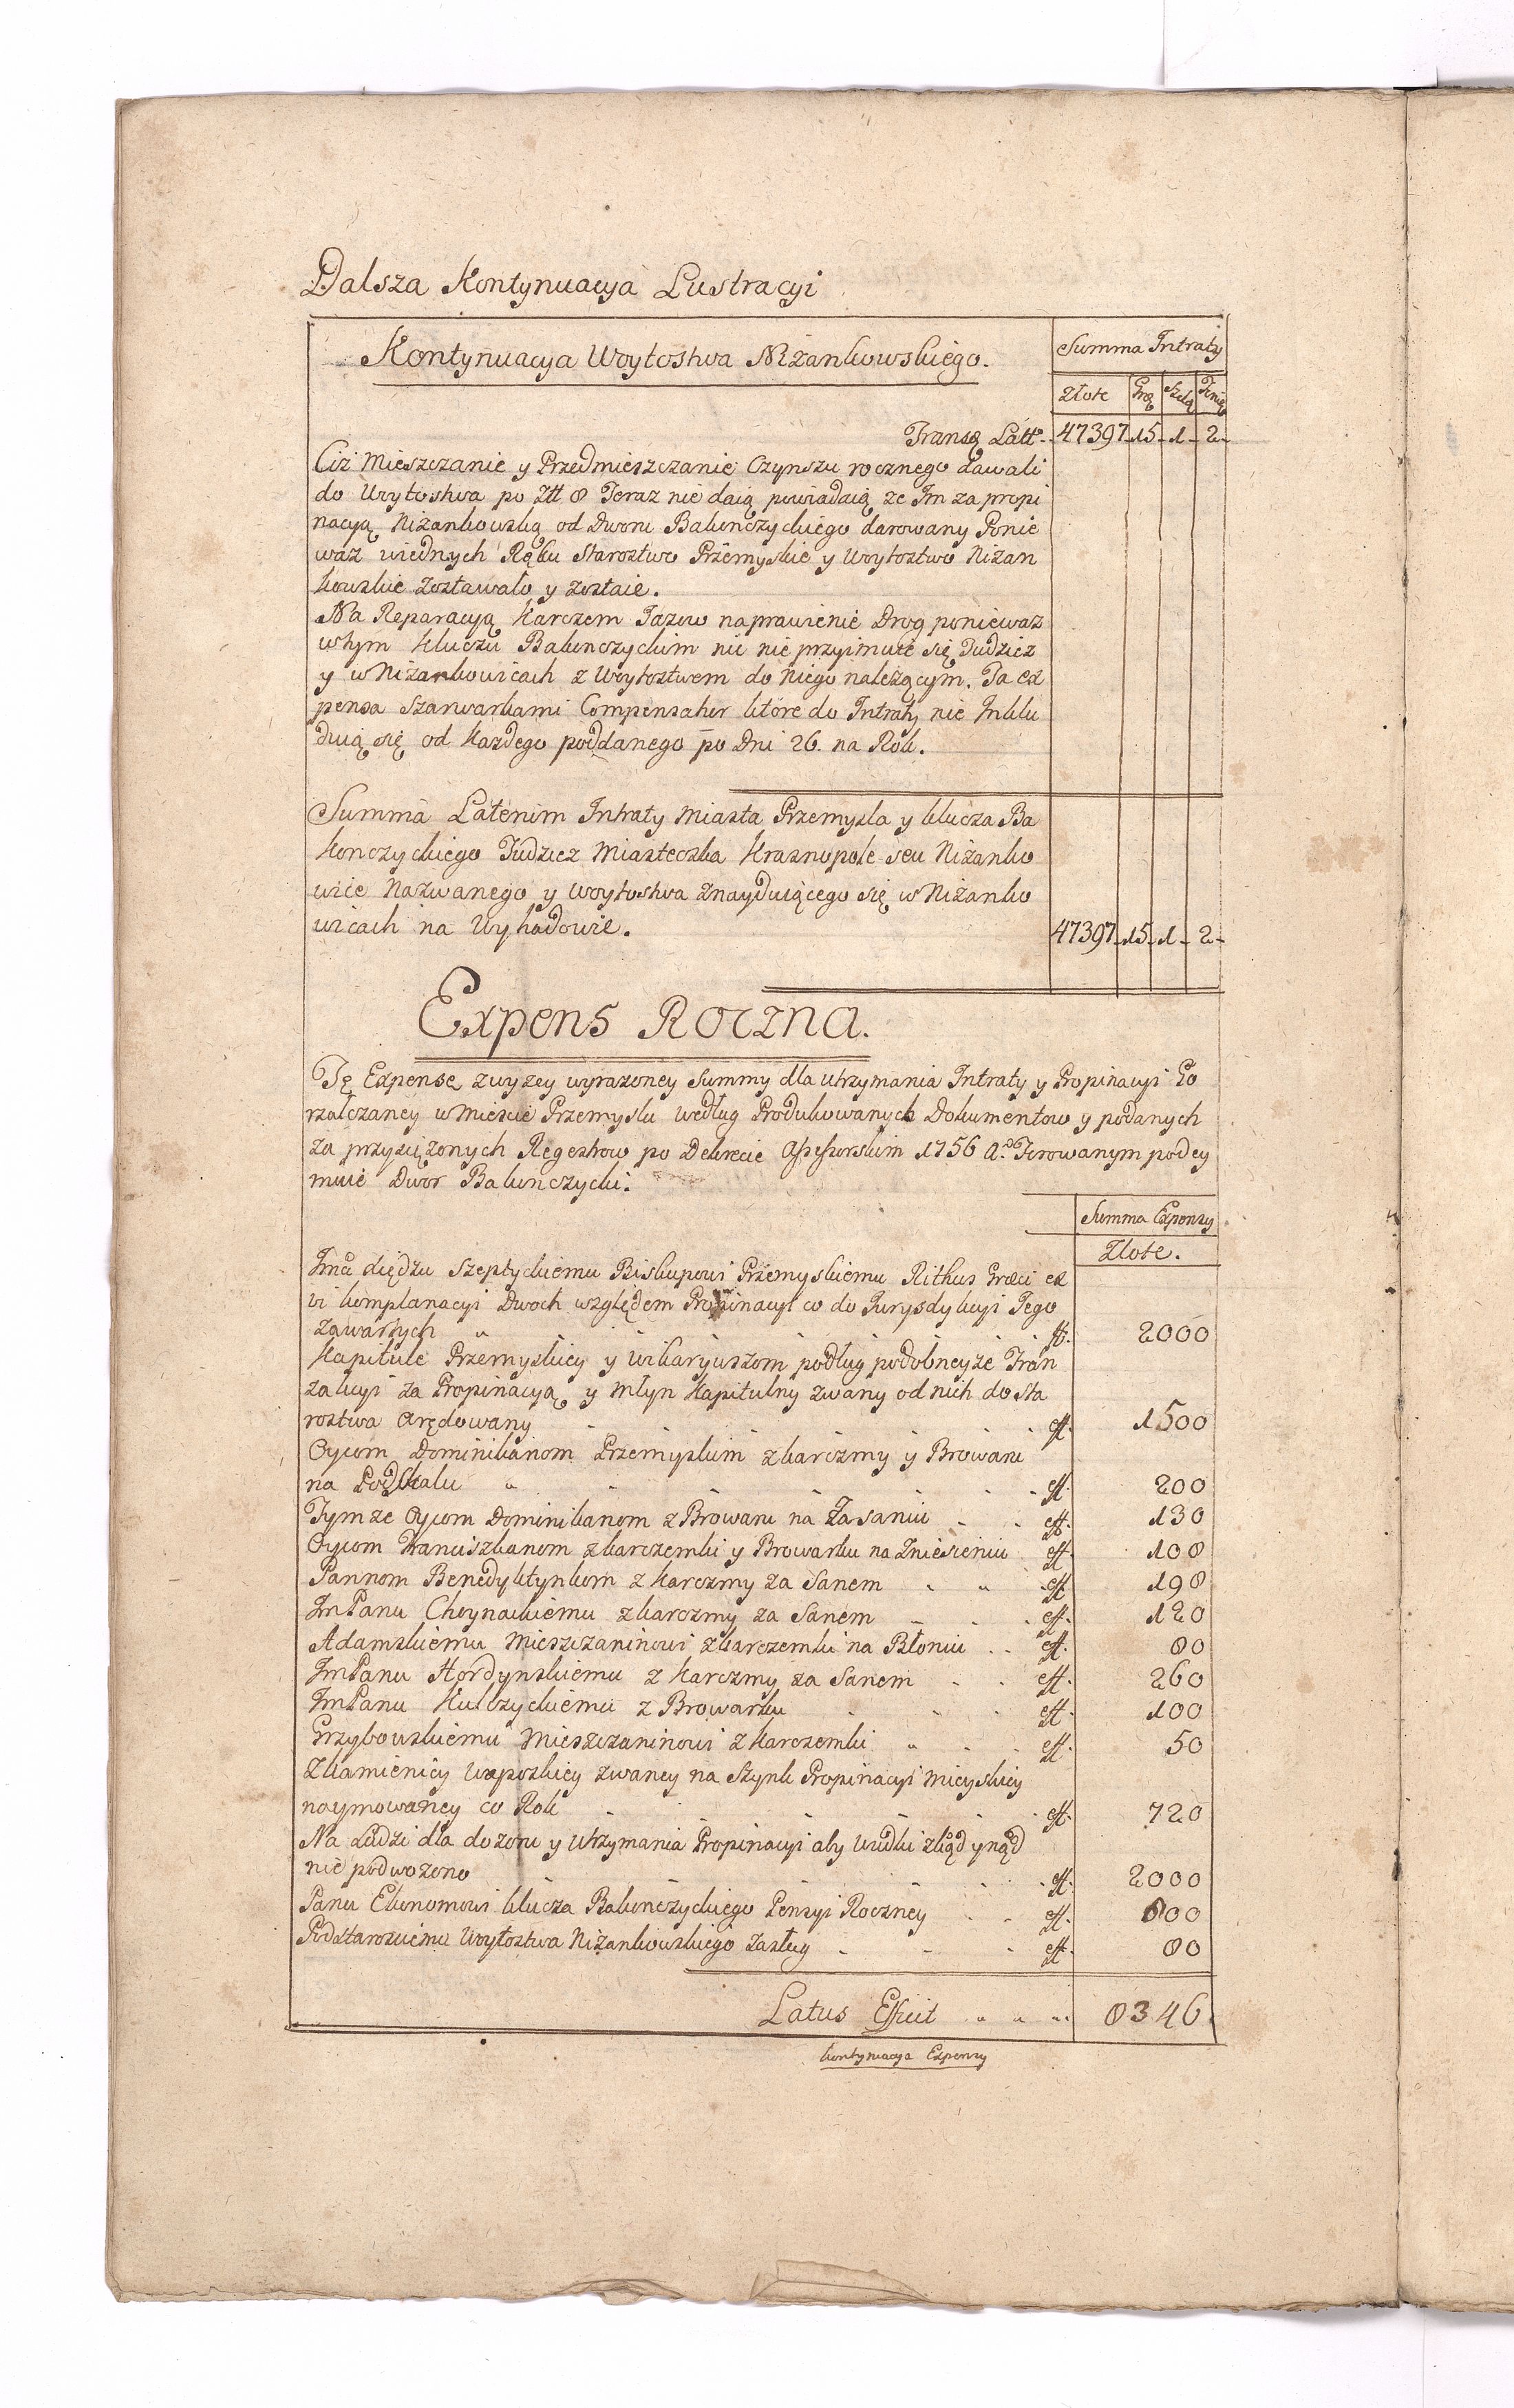 Dalsza Kontynuacya Lustracyi
Kontynuacya Woytostwa Niżankowskiego.
Summa Intraty
Złote Gro Szelą Feni
Transs Latt 47397 15 1 2
Ciż Mieszczanie y Przedmieszczanie Czynszu rocznego dawali
do Woytostwa po Ztt 8 Teraz nie daią powiadaią ze Im za propi
nacyą Niżankowską od Dworu Bakunczyckiego darowany Ponie
waz wiednych Ręku Starostwo Przemyskie y Woytostwo Niżan
kowskie zostawało y zostaie.
Na Reparacyą Karczem Jazow naprawienie Drog poniewaz
wtym kluczu Bakunczyckim nic nie przyimuie się Tudziez
y w Niżankowicach z Woytostwem do niego należącym. Ta ex
pensa Szarwarkami Compensatur które do Intraty nie Inklu
duią się od Każdego poddanego po Dni 26. na Rok.
Summa Laterum Intraty Miasta Przemysla y klucza Ba
konczyckiego Tudziez Miasteczka Krasnopole seu Niżanko
wice Nazwanego y Woytostwa znayduiącego się w Niżanko
wicach na Wyhadowie. 47397 15 1 2
Expens Roczna.
Tę Expensę zwyzey wyrazoney Summy dla utrzymania Intraty y Propinacyi Go
rzalczaney w Miescie Przemyslu według Produkowanych Dokumentow y podanych
za przysiężonych Regestrow po Dekrecie Assessorskim 1756 Ao Ferowanym podey
muie Dwor Bakunczycki.
Summa Expensy
Złote.
Imci Xiędzu Szeptyckiemu Biskupowi Przemyskiemu Rithus Græci ex
vi komplanacyi Dwoch względem Propinacyi co do Jurysdykcyi Jego
zawartych ft. 2000
Kapitule Przemyskiey y Wikaryuszom podług podobneyze Tran
zakcyi za Propinacyą y Młyn Kapitulny zwany od nich do Sta
rostwa Arędowany ft. 1500
Oycom Dominikanom Przemyskim z karczmy y Browaru
na Podskalu ft. 200
Tymze Oycom Dominikanom z Browaru na Zasaniu ft. 130
Oycom Franciszkanom z karczemki y Browarku na Zniesieniu ft 108
Pannom Benedyktynkom z Karczmy za Sanem ft 198
ImPanu Choynackiemu z karczmy za Sanem ft. 120
Adamskiemu Mieszczaninowi z karczemki na Błoniu ft. 80
ImPanu Hordynskiemu z Karczmy za Sanem ft. 260
ImPanu Kulczyckiemu z Browarku ft 100
Grzybowskiemu Mieszczaninowi z Karczemki ft. 50
Z kamienicy zwaney na Szynk Propinacyi Mieyskiey
naymowaney co Rok ft. 720
Na Ludzi dla dozoru y utrzymania Propinacyi aby wudki zkąd ynąd
nie podwozono ft. 2000
Panu Ekonomowi klucza Bakunczyckiego Pensyi Roczney ft. 800
Podstarosciemu Woytostwa Niżankowskiego zasług ft. 80
Latus Efficit 8346.
kontynuacya Expensy